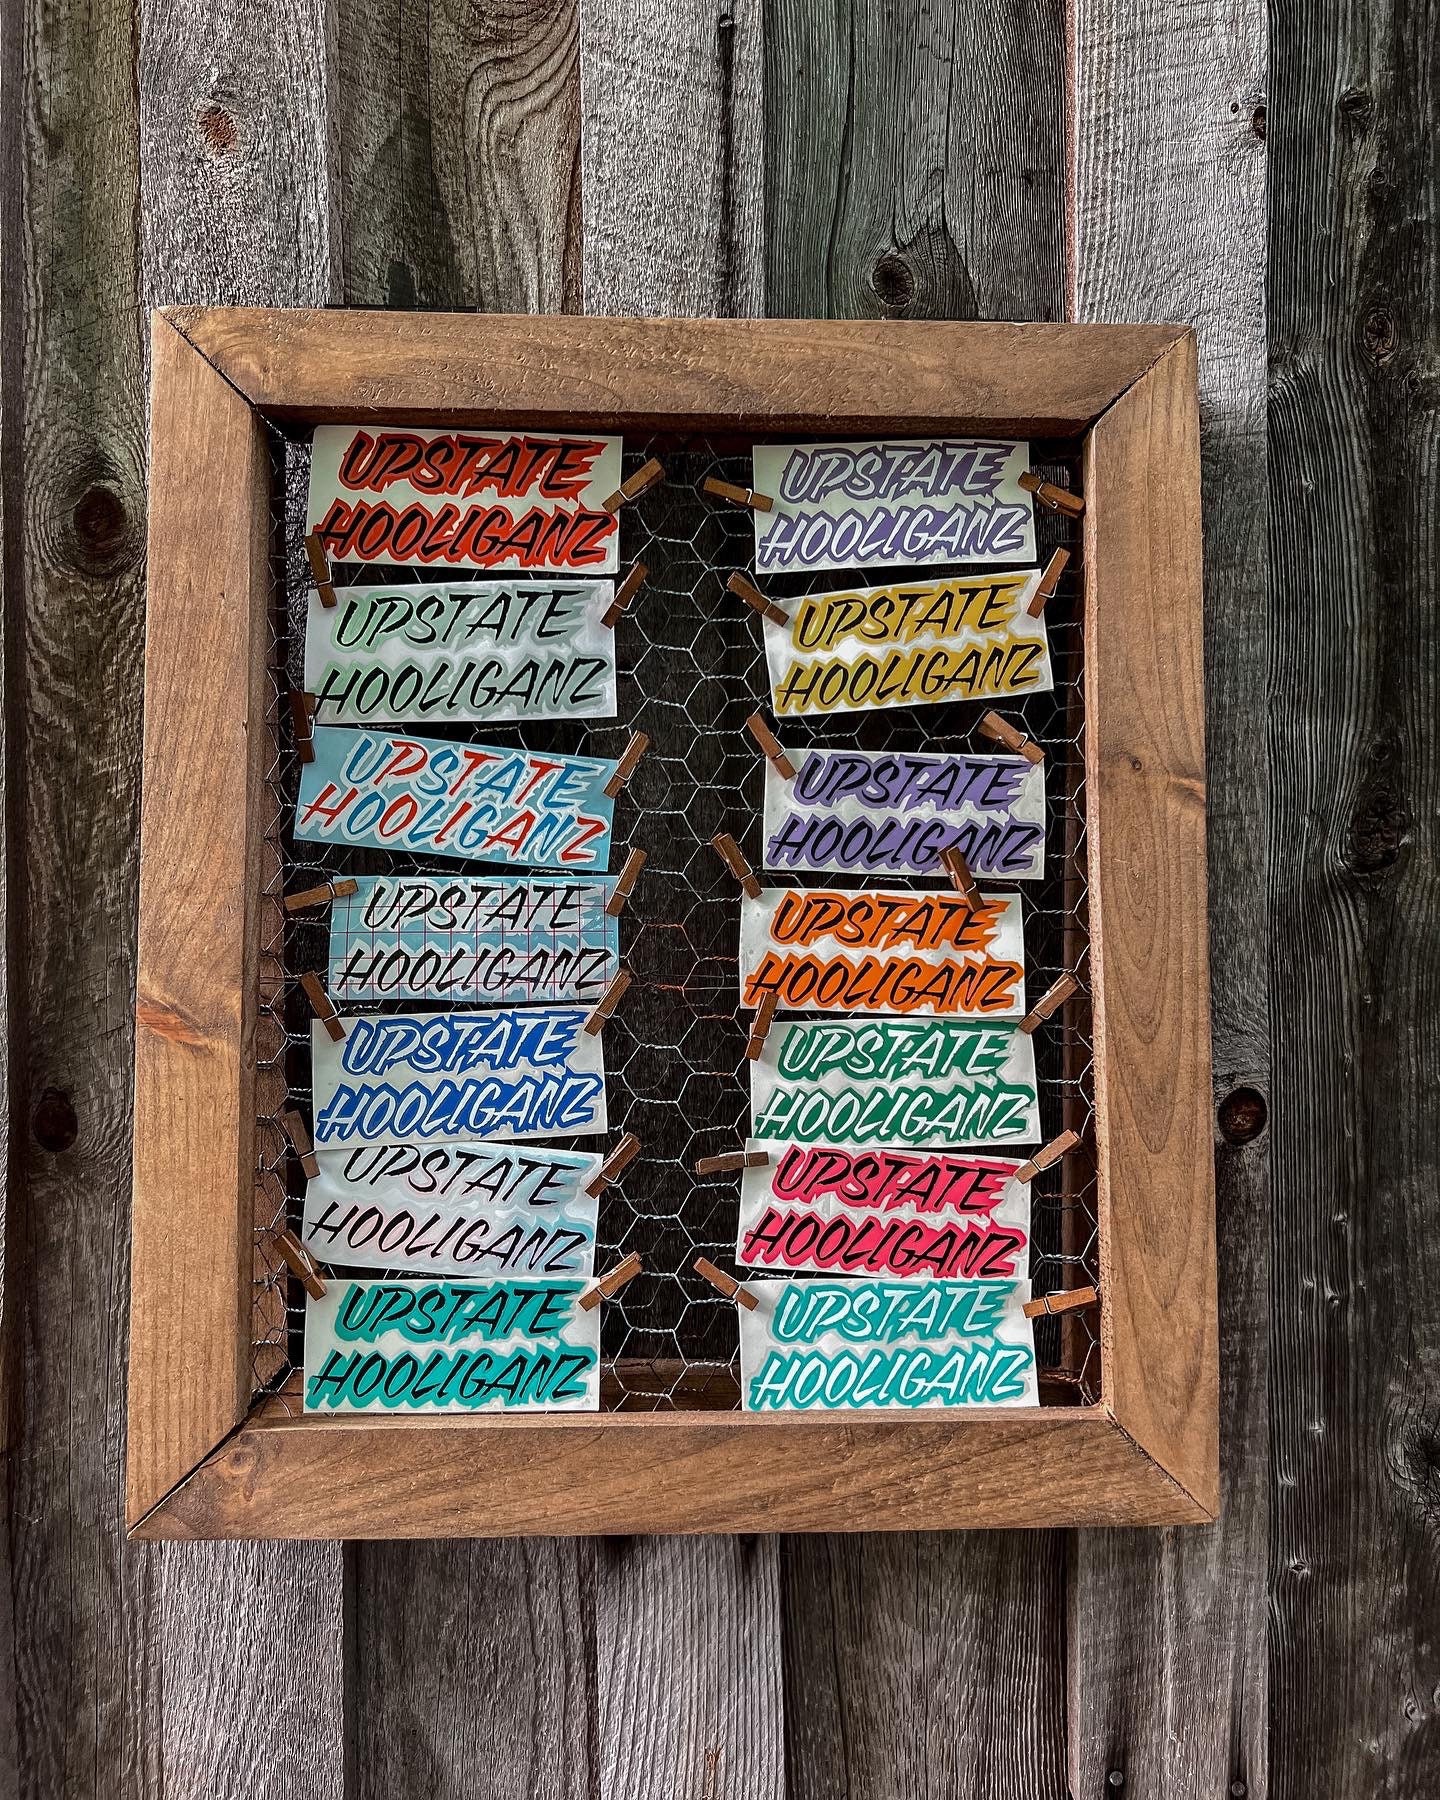 UPSTATE
HOOLIGANZ
UPSTATE
HOOLIGANZ
UPSTATE
HOOLIGANZ
UPSTATE
HOOLIGANZ
UPSTATE
HOOLIGANZ
UPSTATE
HOOLIGANZ
UPSTATE
HOOLIGANZ
UPSTATE
HOOLIGANZ
UPSTATE
HOOLIGANZ
UPSTATE
HOOLIGANZ
UPSTATE
HOOLIGANZ
UPSTATE
HOOLIGANZ
UPSTATE
HOOLIGANZ
UPSTATE
HOOLIGANZ